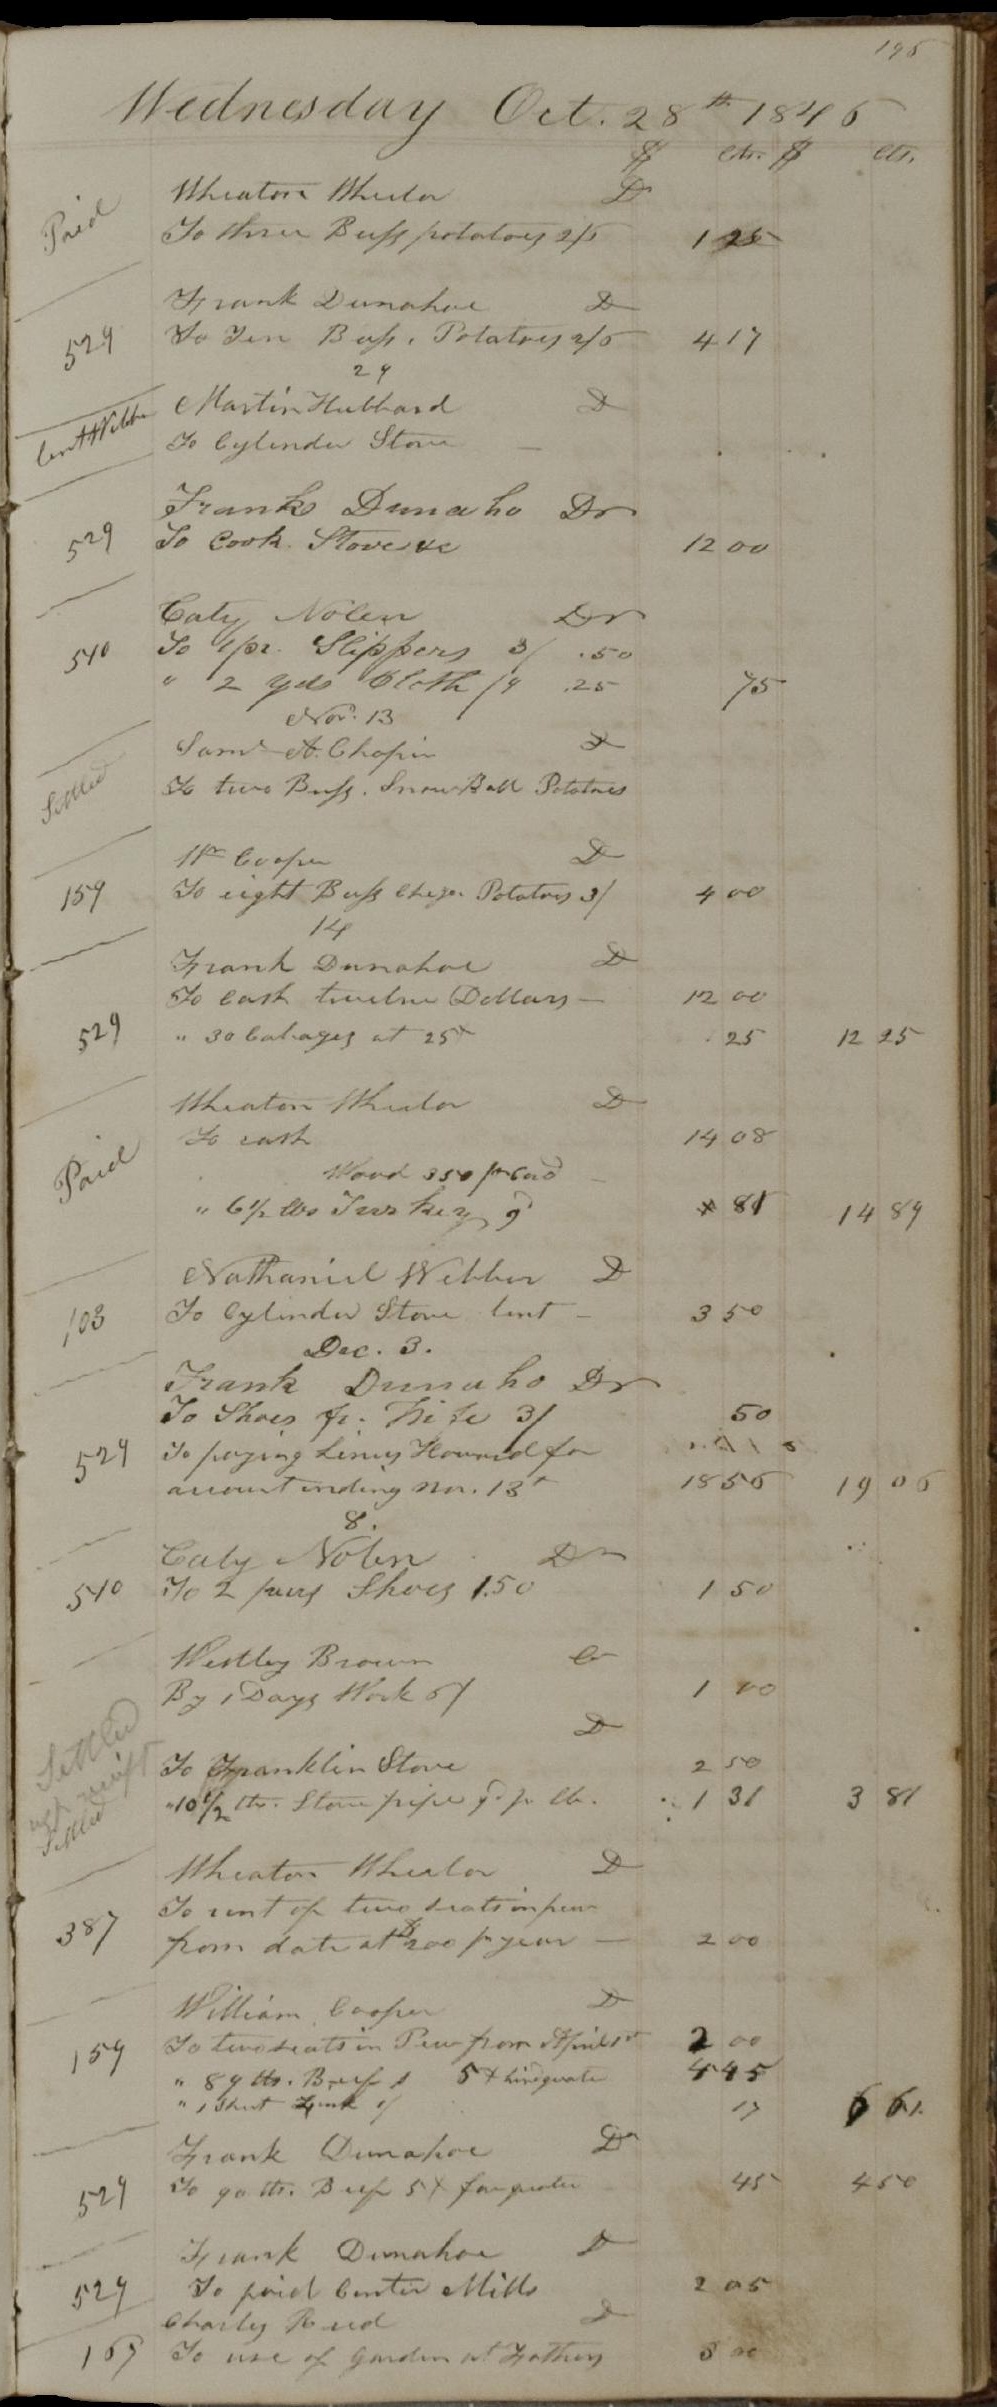 195
Wednesday Oct. 28th 1846
$ cts. $ cts.
Wheaton Wheelor D
Paid To three Bush potatoes 2/6 1 25
Frank Dunahoe D
529 To Ten Bush. Potatoes 2/6 4 17
29
Martin Hubbard D
To Cylinder Stove —
Frank Dunaho Dr
529 To Cook Stove &c 12 00
Caty Nolen Dr
540 To 1 pr. Slippers 3/ .50
" 2 yds Cloth /9 .25 75
Nov. 13
Saml A. Chapin D
Settled To two Bush. Snow Ball Potatoes
Wm Cooper D
159 To eight Bush Potatoes 3/ 4 00
14
Frank Dunahoe D
To Cash twelve Dollars — 12 00
529 " 30 Cabages at 25 25 12 25
Wheaton Wheelor D
Paid To cash 14 08
Wood 350 pr Cord —
" 6 1/2 lbs Turkey 9d 81 14 89
Nathaniel Webber D
103 To Cylinder Stove lent — 3 50
Dec. 3.
Frank Dunaho Dr
To Shoes fr. Wife 3/ 50
529 To paying Linus Howard for
account ending Nov. 13th 18 56 19 06
8.
Caty Nolen Dr
540 To 2 pairs Shoes 1.50 1 50
Westley Brown Cr
By 1 Days Work 6/ 1 00
D
Settled To Franklin Stove 2 50
Settled " 10 1/2 lbs. Stove pipe 9d pr lb. 1 31 3 81
Wheaton Wheelor D
To rent of two seats in pew
387 from date at $200 pr year — 2 00
William Cooper D
159 To two seats in Pew from April 1st 2 00
" 89 lbs. Beef 5 hindquarter 4 45
" 1 Sheet Zink 1/ 17 6 61.
Frank Dunahoe Dr
529 To 90 lbs. Beef 5 forequarter 45 4 50
Frank Dunahoe D
529 To paid Center Mills 2 05
Charley Reed D
169 To use of Garden at Fathers 3 00